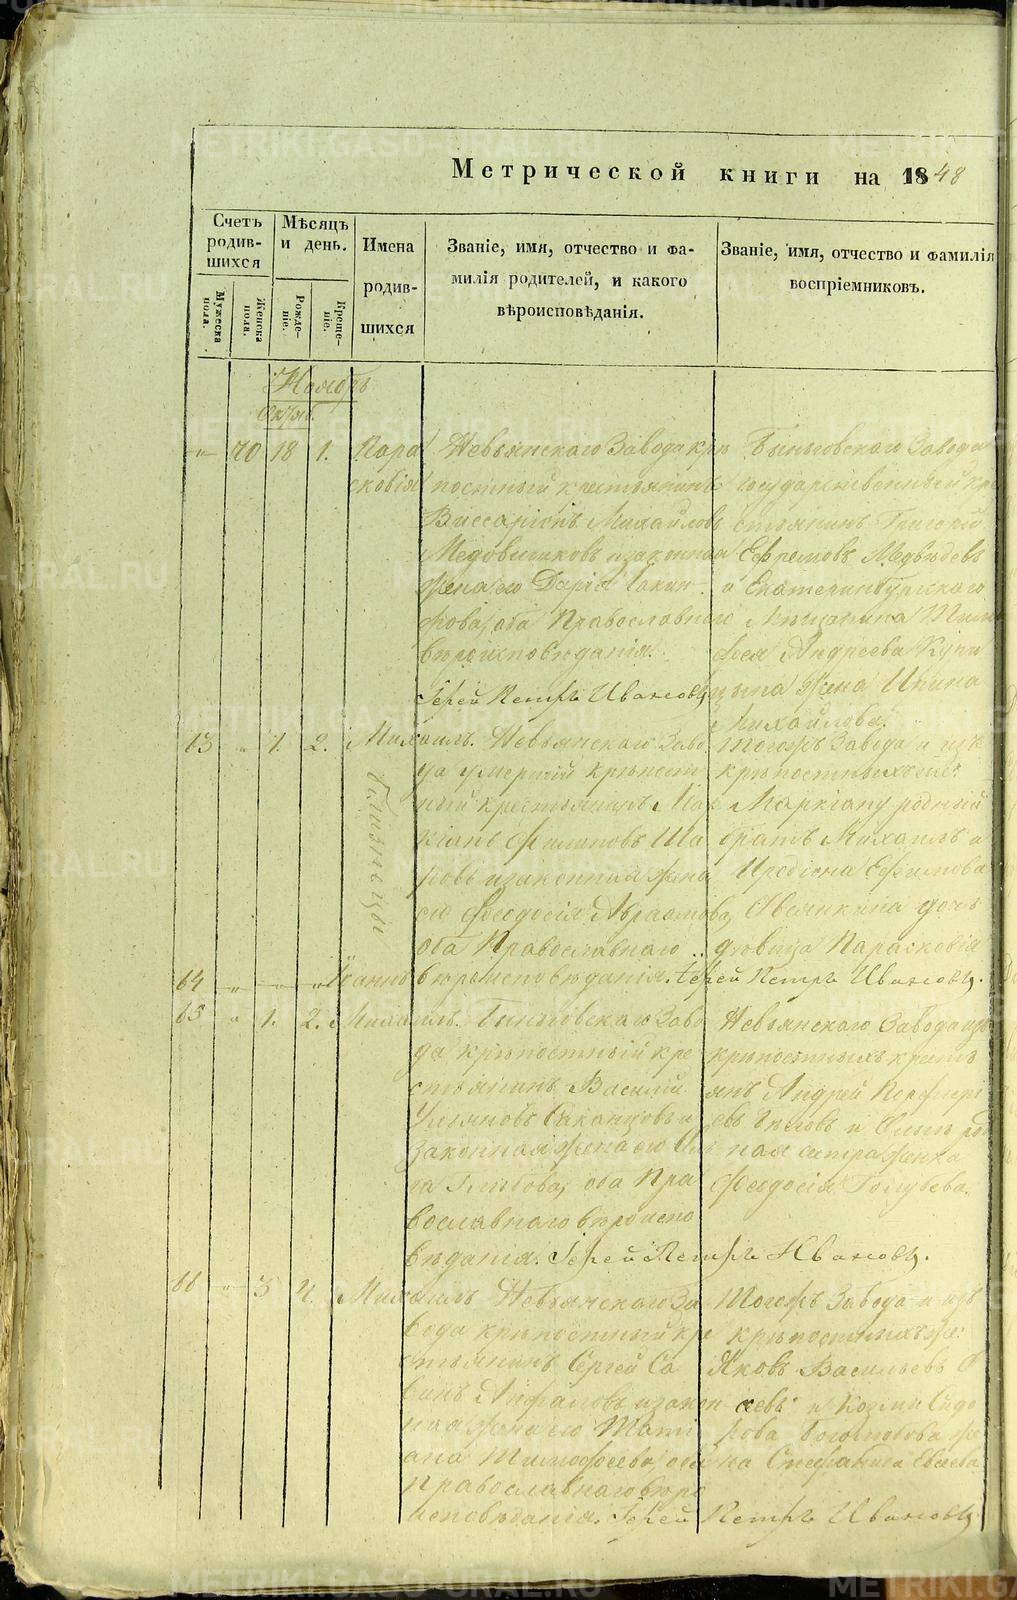 Метрической книги на 1848
Счетъ родив-шихся
Мѣсяцъ и день.
Имена родив-шихся
Званіе, имя, отчество и фа-
милія родителей, и какого
вѣроисповѣданія.
Званіе, имя, отчество и фамилія
воспріемниковъ.
Мужеска пола.
Женска пола.
Рожде-ніе.
Креще-ніе.
Ноябрь
Октяб.
70 18 1.
Пара
сковія
Невьянскаго Завода крѣ
постный крестьянинъ
Виссаріонъ Михайловъ
Медовщиковъ и законная
жена его Дарія Іакин
фова, оба Православнаго
вѣроисповѣданія.
Іерей Петръ Ивановъ
Быньговскаго Завода
государственный кре
стьянинъ Григорій
Ефремовъ Медведевъ
и Екатеринбургскаго
Мѣщанина Тимо
фея Андреева
жена Ирина
Михайлова.
13 " 1. 2. Михаилъ.
близнецы
Невьянскаго Заво
да умершій крѣпост
ный крестьянинъ Мар
кіанъ Филиповъ
и законная жена
его Феодосія Авраамова,
оба Православнаго
вѣроисповѣданія. Іерей Петръ Ивановъ.
Тогожъ Завода и изъ
крѣпостныхъ же:
Маркіану родный
братъ Михаилъ и
Иродіона Ефимова
Овсянкина дочь
дѣвица Парасковія
64 " " " Іоаннъ
65 " 1. 2. Михаилъ.
Быньговскаго Заво
да крѣпостный кре
стьянинъ Василій
Ульяновъ и
законная жена его
Глѣбова, оба Пра
вославнаго вѣроиспо
вѣданія. Іерей Петръ Ивановъ.
Невьянскаго Завода изъ
крѣпостныхъ кресть
янъ Андрей Порфирі
евъ и
ная сестра женка
Феодосія Голубева.
66 " 3 4. Михаилъ
Невьянскаго За
вода крѣпостный кре
стьянинъ Сергей Са
винъ и закон
ная жена его Тати
ана Тимофеева, оба
Православнаго вѣро
исповѣданія. Іерей Петръ Ивановъ.
Тогожъ Завода и изъ
крѣпостныхъ же:
Яковъ Васильевъ
и Козмы Сидо
рова Богомолова же
на Стефанида